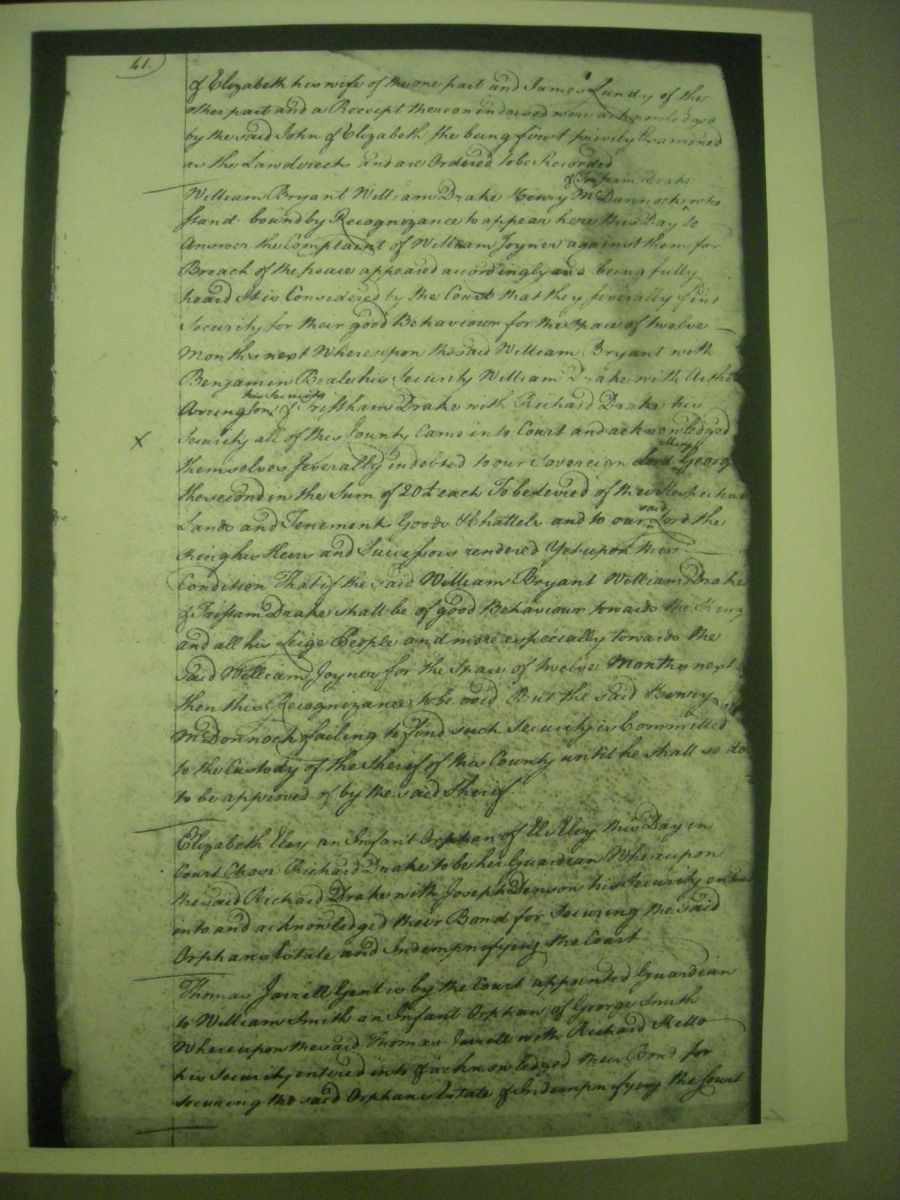 41.
& Elizabeth his wife of the one part and James Lundy of the
other part and a Receipt thereon endorsed were acknowledged
by the said John & Elizabeth she being first privily Examined
as the Law directs and are Ordered to be Recorded
& Tristram Drake
William Bryant William Drake Henry McDannock ^ who
stand bound by Recognizance to appear here this Day to
Answer the Complaint of William Joyner against them for
Breach of the peace appeared accordingly and being fully
heard It is Considered by the Court that they severally find
Security for their good Behaviour for the space of twelve
Months next Whereupon the said William Bryant with
Benjamin Beale his Security William Drake with Arthur
his Security
Arrington & Tristham Drake with Richard Drake his
X
Security all of this County Came into Court and acknowledged
themselves severally indebted to our Sovereign Lord George
the second in the Sum of 20£ each To be levied of their Respective
said
Lands and Tenements Goods & Chattels and to our Lord the
King his Heirs and Successors rendered Yet upon this
Condition That if the said William Bryant William Drake
& Tristam Drake shall be of good Behaviour towards the King
and all his Leige People and more especially towards the
said William Joyner for the Space of twelve Months next
then this Recognizance to be void But the said Henry
McDonnock failing to find such Security is Committed
to the Custody of the Sherif of this County until he shall so do
to be approved of by the said Sherif
Elizabeth Eley an Infant Orphan of Eli Eley this Day in
Court Chose Richard Drake to be her Guardian Whereupon
the said Richard Drake with Joseph Denson his Security entered
into and acknowledged their Bond for Securing the said
Orphans Estate and Indempnifying the Court
Thomas Jarrell Gent is by the Court appointed Guardian
to William Smith an Infant Orphan of George Smith
Whereupon the said Thomas Jarrell with Richard Kello
his Security entered into & acknowledged their Bond for
securing the said Orphans Estate & Indempnifying the Court